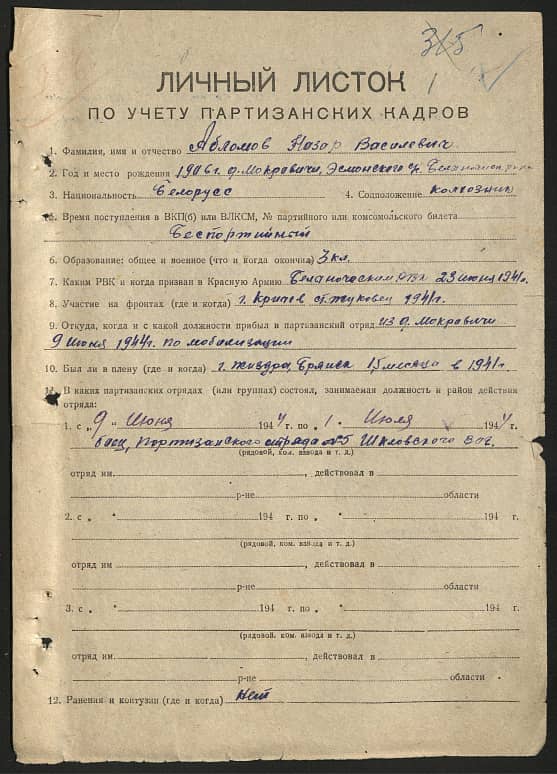 315
1
ЛИЧНЫЙ ЛИСТОК
ПО УЧЕТУ ПАРТИЗАНСКИХ КАДРОВ
1. Фамилия, имя и отчество Абломов Назор Василевич
2. Год и место рождения 1906 г. д. Мокравичи, Эсмонского с/с,
3. Национальность Белорусс 4. Соцположение колхозник
5. Время поступления в ВКП(б) или ВЛКСМ, № партийного или комсомольского билета
Беспортийный
6. Образование: общее и военное (что и когда окончил) 3 кл.
7. Каким РВК и когда призван в Красную Армию 23 июня 1941г.
8. Участие на фронтах (где и когда) г. Кричев ст. жуковец 1941г.
9. Откуда, когда и с какой должности прибыл в партизанский отряд из д. Мокравичи
9 Июня 1944г. по мобилизации
10. Был ли в плену (где и когда) г. жиздра, Брянск 15 месяца в 1941г.
11. В каких партизанских отрядах (или группах) состоял, занимаемая должность и район действия
отряда:
1. с „9„ Июня 1944 г. по „1„ Июля 1944 г.
боец, Портизанского отряда №5 Шкловского
(рядовой, ком. взвода и т. д.)
отряд им , действовал в
р-не области
2. с „ “ 194 г. по „ “ 194 г.
(рядовой, ком. взвода и т. д.)
отряд им , действовал в
р-не области
3. с „ “ 194 г. по „ “ 194 г.
(рядовой, ком. взвода и т. д.)
отряд им. , действовал в
р-не области
12. Ранения и контузии (где и когда) нет